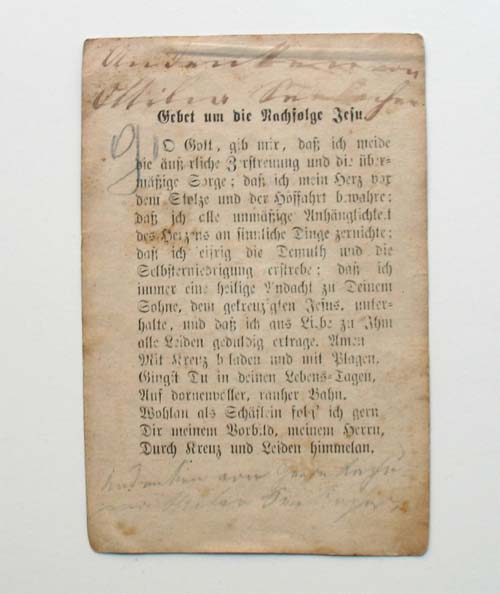 Andenken von
Gebet um die Nachfolge Jesu.
O Gott, gib mir, daß ich meide
die äußerliche Zerstreuung und die über-
mäßige Sorge; daß ich mein Herz vor
dem Stolze und der Hoffahrt bewahre;
daß ich alle unmäßige Anhänglichkeit
des Herzens an sinnliche Dinge zernichte;
daß ich eifrig die Demuth und die
Selbsterniedrigung erstrebe; daß ich
immer eine heilige Andacht zu Deinem
Sohne, dem gekreuzigten Jesus, unter-
halte, und daß ich aus Liebe zu Ihm
alle Leiden geduldig ertrage. Amen
Mit Kreuz beladen und mit Plagen,
Gingst Du in deinen Lebens-Tagen,
Auf dornenvoller, rauher Bahn.
Wohlan als Schäflein folg' ich gern
Dir meinem Vorbild, meinem Herrn,
Durch Kreuz und Leiden himmelan.
Andenken von